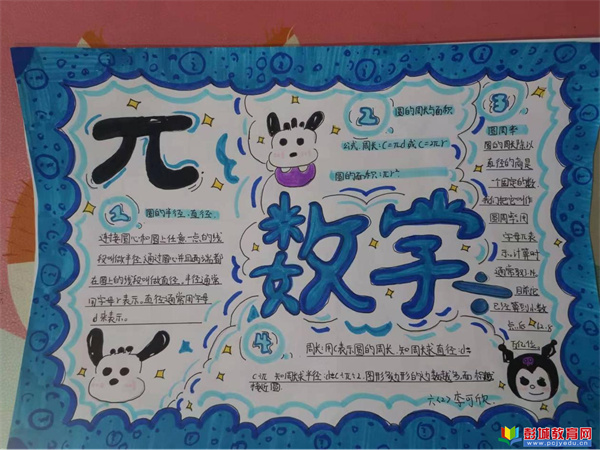 π
1 圆的半径、直径
连接圆心和圆上任意一点的线
段叫做半径,通过圆心并且两端都
在圆上的线段叫做直径。半径通常
用字母r表示,直径通常用字母
d来表示。
2 圆的周长与面积
公式:周长:C=πd或C=2πr
圆的面积:πr²
3
圆周率
圆的周长除以
直径的商是
一个固定的数
我们把它叫做
圆周率,用
字母π表
示,计算时
通常取3.14
目前已
已经算到小数
数学
÷
4 周长:用C表示圆的周长,知周长求直径:d=
C÷π 知周长求半径
接近圆
六(2) 李可欣
彭城教育网
www.pcjyedu.cn